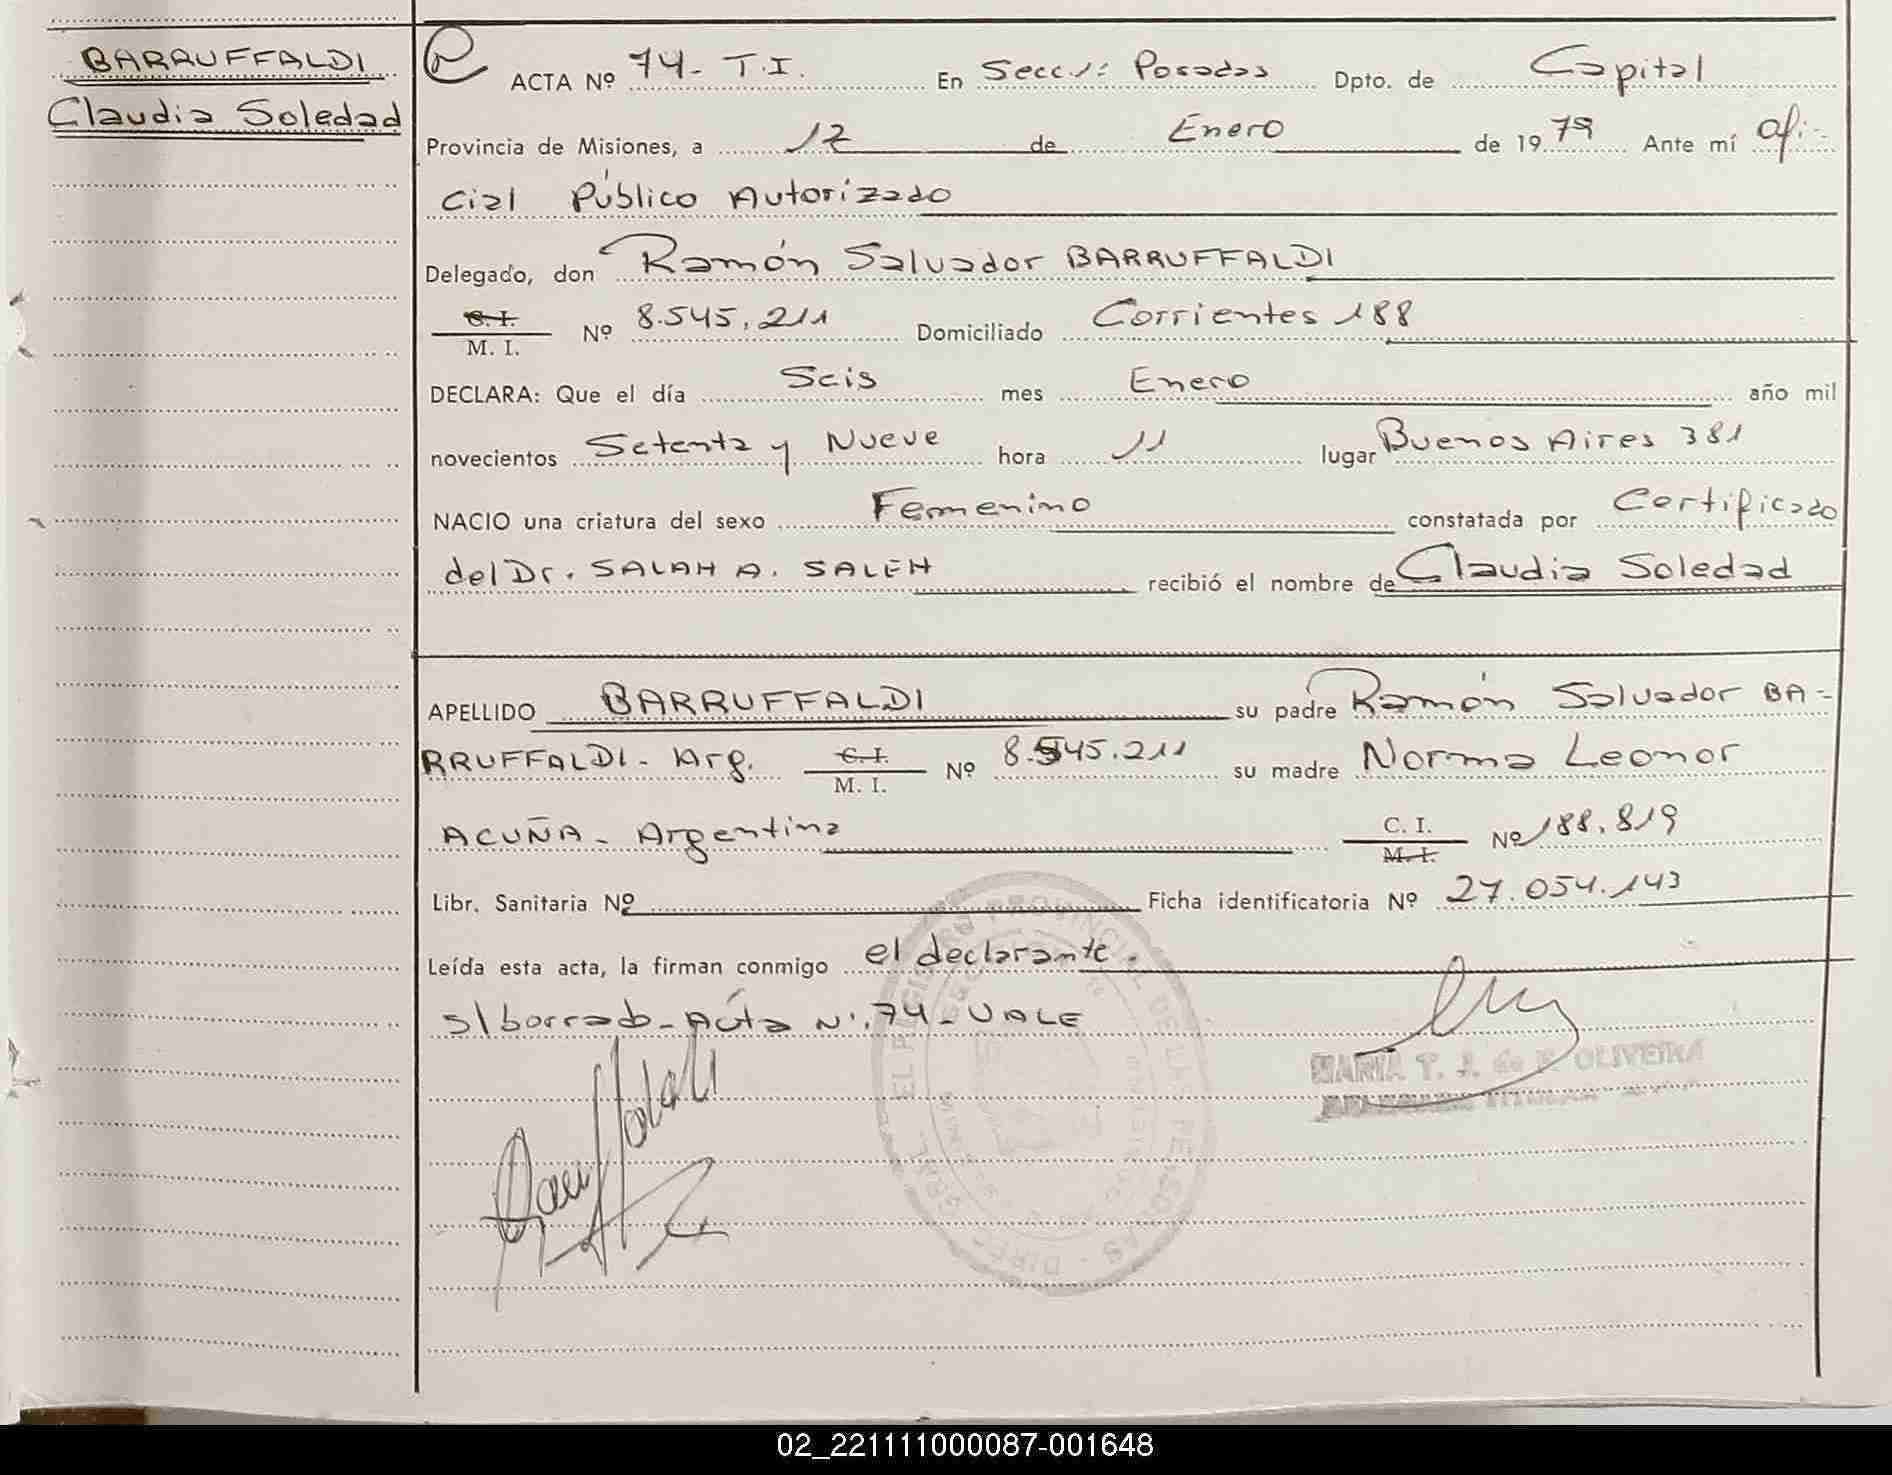 BARRUFFALDI
Claudia Soledad
ACTA Nº 74- T.I. En Secc.1: Posadas Dpto. de Capital
Provincia de Misiones, a 12 de Enero de 1979 Ante mí ofi-
cial Público Autorizado
Delegado, don Ramón Salvador BARRUFFALDI
C. I.
M. I. Nº 8.545.211 Domiciliado Corrientes 188
DECLARA: Que el día Seis mes Enero año mil
novecientos Setenta y Nueve hora 11 lugar Buenos Aires 381
NACIO una criatura del sexo Femenino constatada por Certificado
del Dr. SALAH A. SALEH recibió el nombre de Claudia Soledad
APELLIDO BARRUFFALDI su padre Ramón Salvador BA-
RRUFFALDI- Arg. C. I. M. I. Nº 8.545.211 su madre Norma Leonor
ACUÑA- Argentina C. I. M. I. Nº 188.819
Libr. Sanitaria Nº Ficha identificatoria Nº 27.054.143
Leída esta acta, la firman conmigo el declarante.
s/borrado- Acta Nº.74- VALE
MARIA T. J. de OLIVEIRA
TITULAR
REGISTRO PROVINCIAL DE LAS PERSONAS
02_221111000087-001648